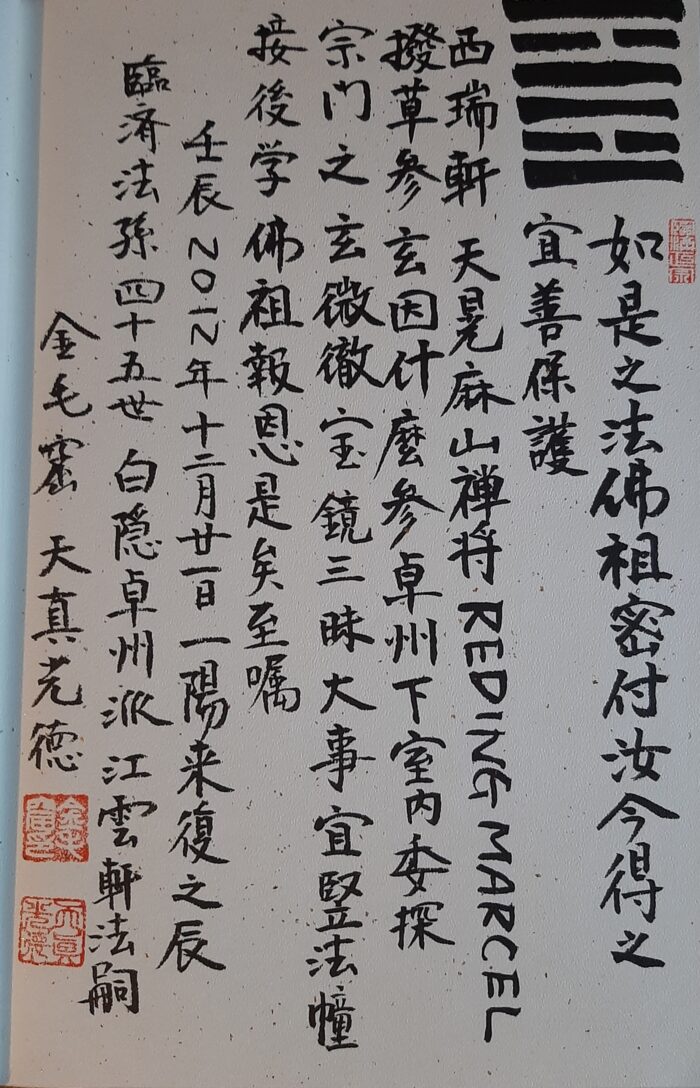 如是之法佛祖密付汝今得之
宜善保護
西瑞軒 天晃麻山禅将 REDING MARCEL
撥草參玄因什麼參卓州下室内委探
宗門之玄微徹宝鏡三昧大事宜竪法幢
接後学佛祖報恩是矣至嘱
壬辰 2012年十二月廿一日一陽来復之辰
臨済法孫四十五世 白隠卓州派 江雲軒法嗣
金毛窟 天真光德